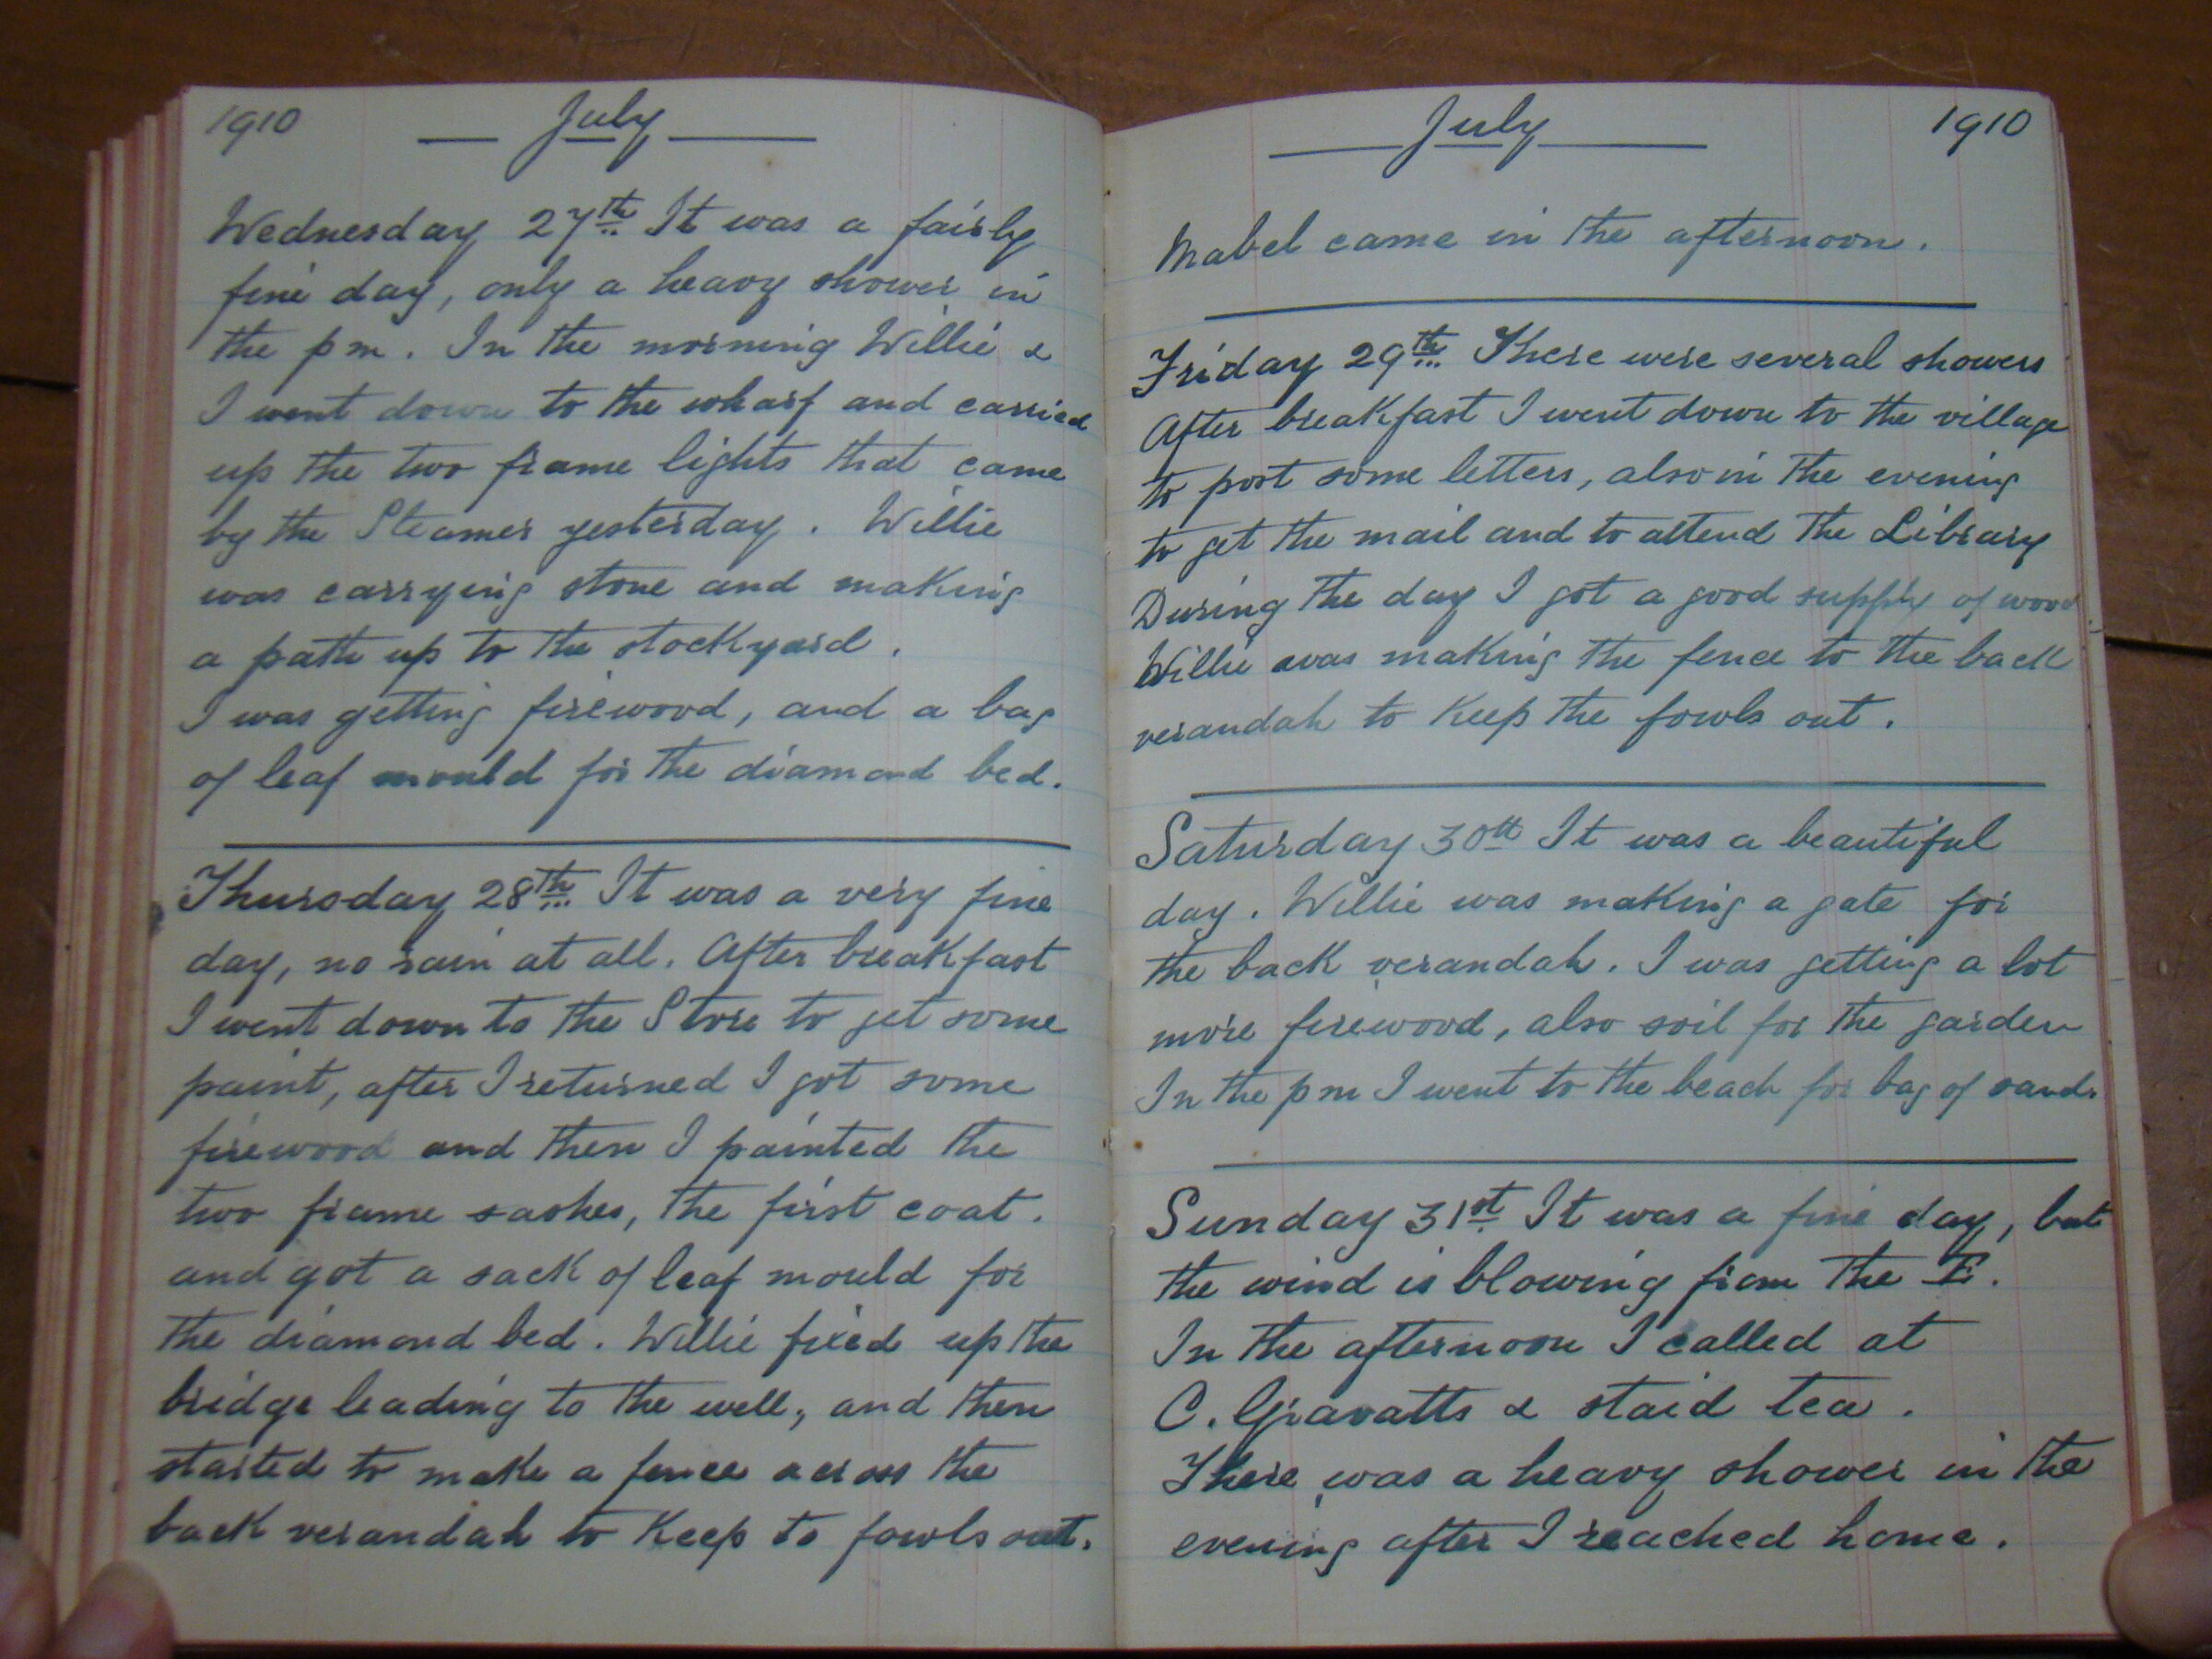 1910
July
Wednesday 27th It was a fairly
fine day, only a heavy shower in
the pm. In the morning Willie &
I went down to the wharf and carried
up the two frame lights that came
by the Steamer yesterday. Willie
was carrying stone and making
a path up to the stockyard.
I was getting firewood, and a bag
of leaf mould for the diamond bed.
Thursday 28th It was a very fine
day, no rain at all. After breakfast
I went down to the Store to get some
paint, after I returned I got some
firewood and then I painted the
two frame sashes, the first coat.
and got a sack of leaf mould for
the diamond bed. Willie fixed up the
bridge leading to the well, and then
started to make a fence across the
back verandah to keep to fowls out.
July
1910
Mabel came in the afternoon.
Friday 29th There were several showers
After breakfast I went down to the village
to post some letters, also in the evening
to get the mail and to attend the Library
During the day I got a good supply of wood
Willie was making the fence to the back
verandah to keep the fowls out.
Saturday 30th It was a beautiful
day. Willie was making a gate for
the back verandah. I was getting a lot
more firewood, also soil for the garden
In the pm I went to the beach for bag of sand.
Sunday 31st It was a fine day, but
the wind is blowing from the E.
In the afternoon I called at
C. Gravatts & staid tea.
There was a heavy shower in the
evening after I reached home.